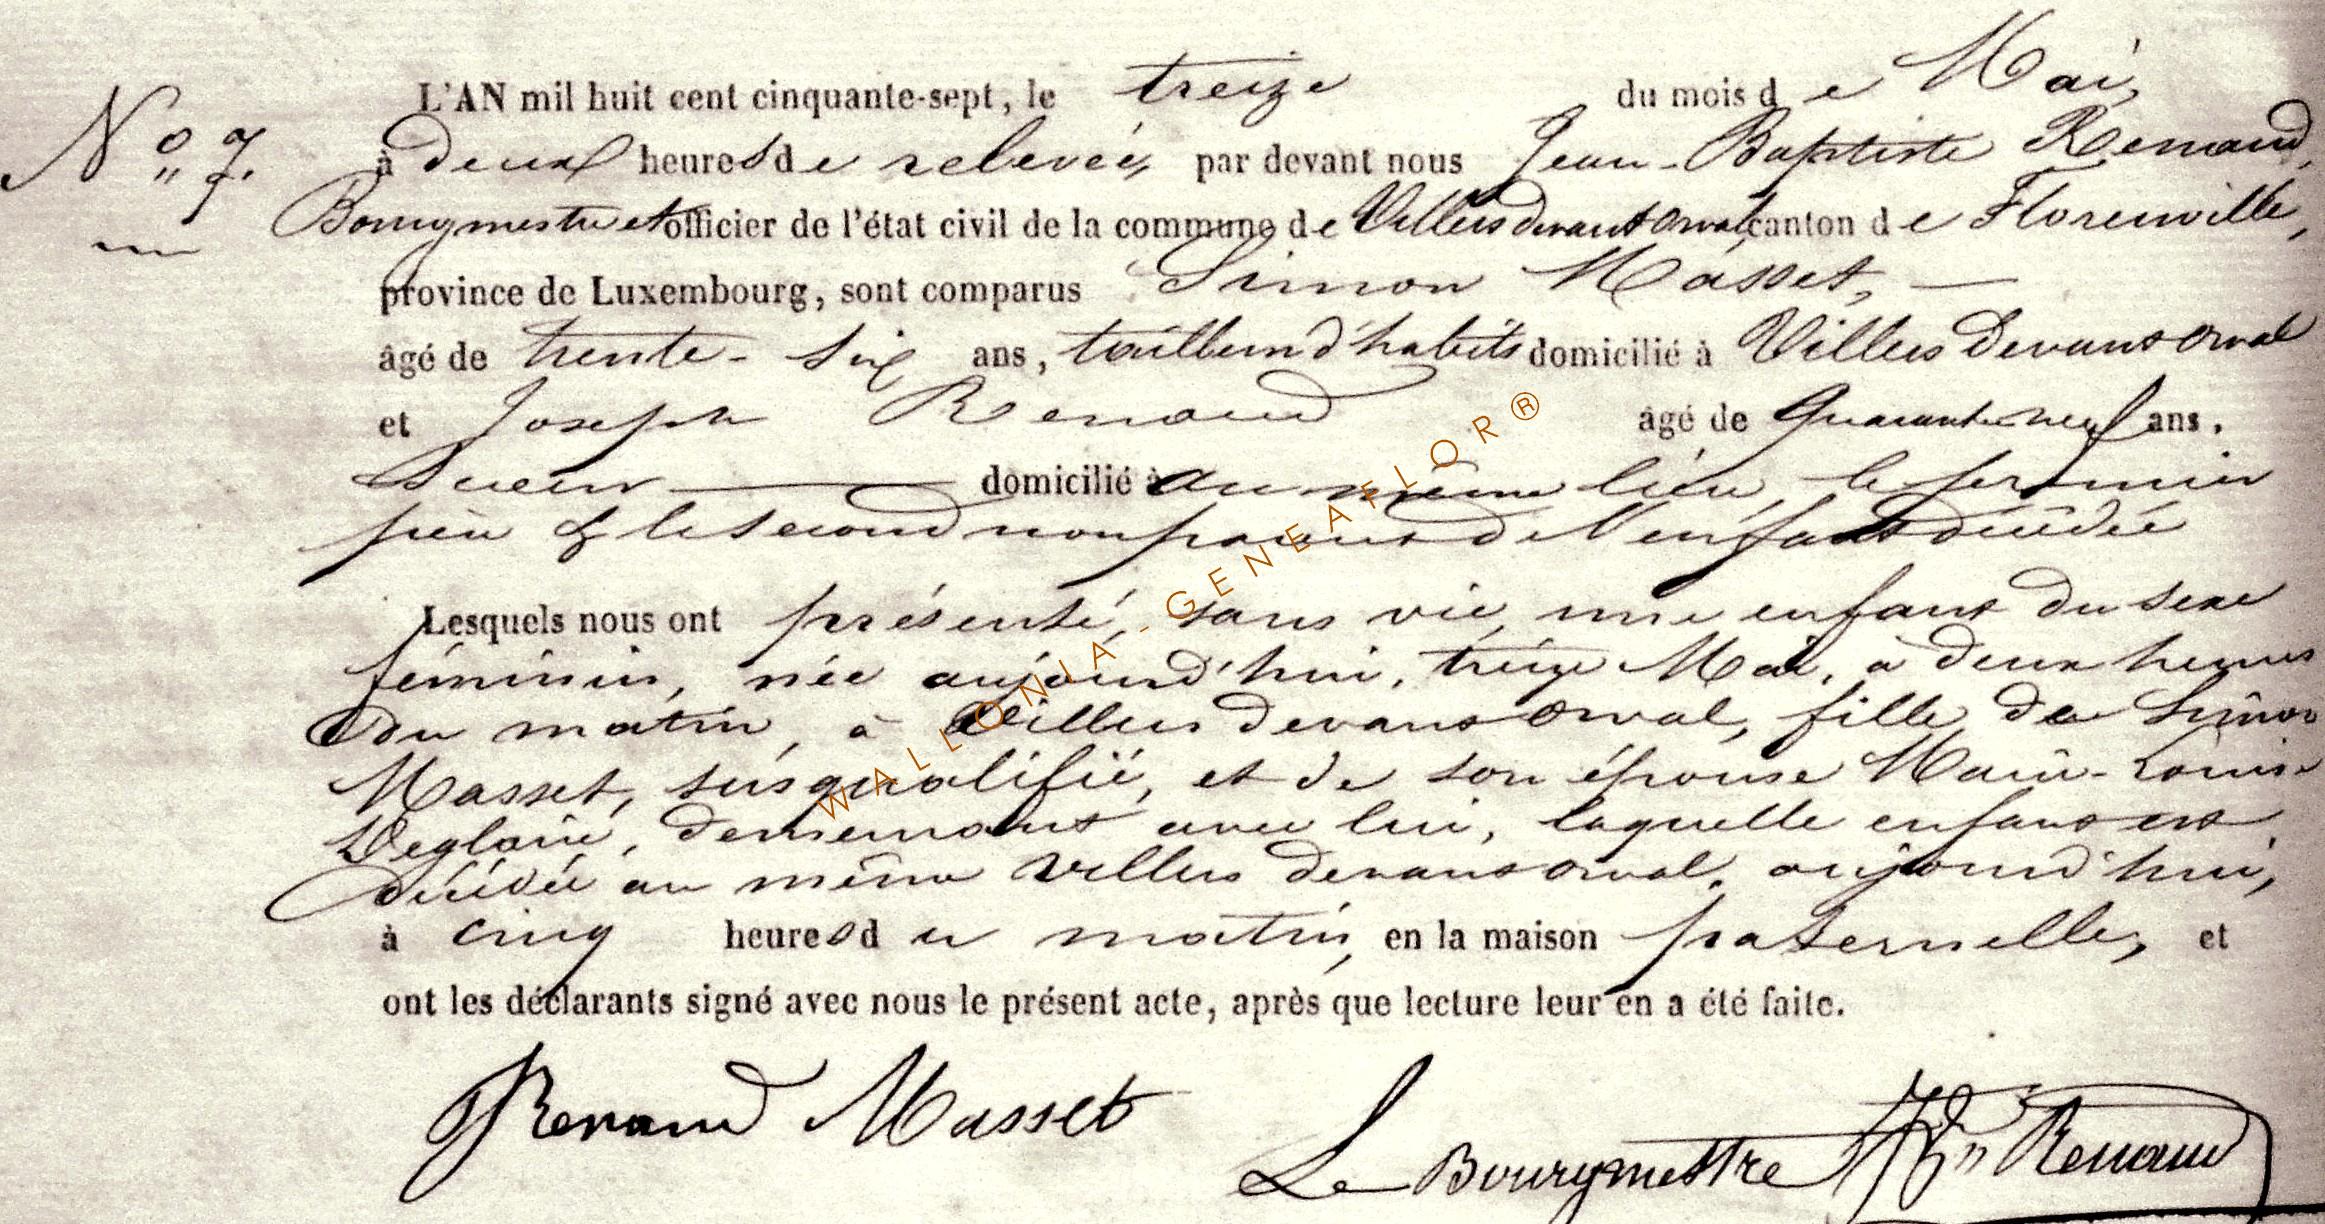 L'AN mil huit cent cinquante-sept, le treize du mois de Mai,
N° 7. à deux heures de relevée, par devant nous Jean-Baptiste Renaud,
Bourgmestre et officier de l'état civil de la commune de Villers devant Orval, canton de Florenville,
province de Luxembourg, sont comparus Simon Masset,
âgé de trente-six ans, tailleur d'habits domicilié à Villers devant Orval
et Joseph Renaud âgé de quarante-neuf ans,
domicilié à au même lieu, le premier
père & le second non parent de l'enfant décédée
Lesquels nous ont présenté, sans vie, une enfant du sexe
féminin, née aujourd'hui, treize Mai, à deux heures
du matin, à Villers devant Orval, fille de Simon
Masset, susqualifié, et de son épouse Marie-Louise
Deglaire, demeurant avec lui, laquelle enfant est
décédée au même Villers devant Orval, aujourd'hui,
à cinq heures du matin, en la maison paternelle, et
ont les déclarants signé avec nous le présent acte, après que lecture leur en a été faite.
Renaud Masset
Le Bourgmestre JBte Renaud
WALLONIA-GENEAFLOR®